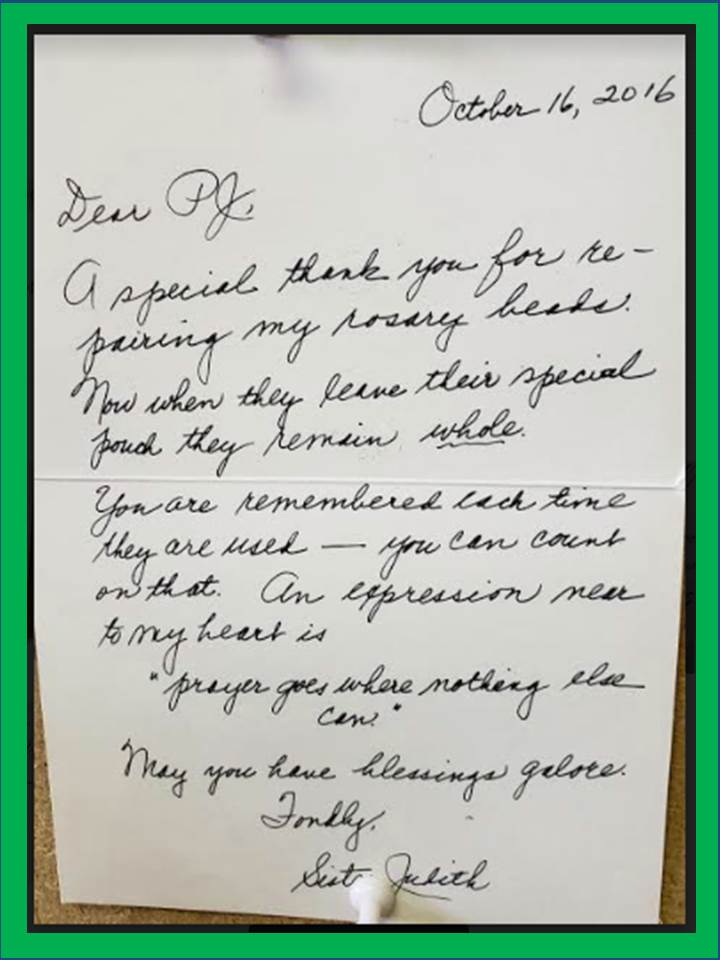 October 16, 2016
Dear PJ,
A special thank you for re-
pairing my rosary beads.
Now when they leave their special
pouch they remain whole.
You are remembered each time
they are used — you can count
on that. An expression near
to my heart is
"prayer goes where nothing else
can."
May you have blessings galore.
Fondly,
Judith